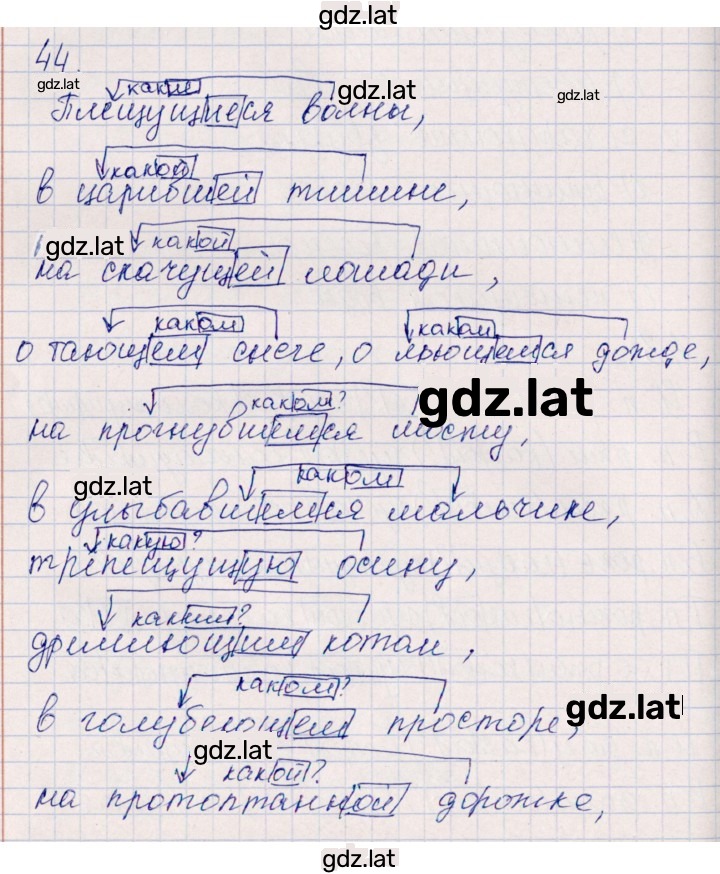 gdz.lat
44.
gdz.lat
какие
gdz.lat
gdz.lat
Плещущиеся волны,
какой
в царившей тишине,
какой
gdz.lat
на скачущей лошади,
каком
каком
о тающем снеге, о льющемся дожде,
каком?
gdz.lat
на прогнувшемся мосту,
каком
gdz.lat
в улыбавшемся мальчике,
какую?
трепещущую осину,
каким?
дремлющим котом,
каком?
gdz.lat
в голубеющем просторе,
gdz.lat
какой?
на протоптанной дорожке,
gdz.lat